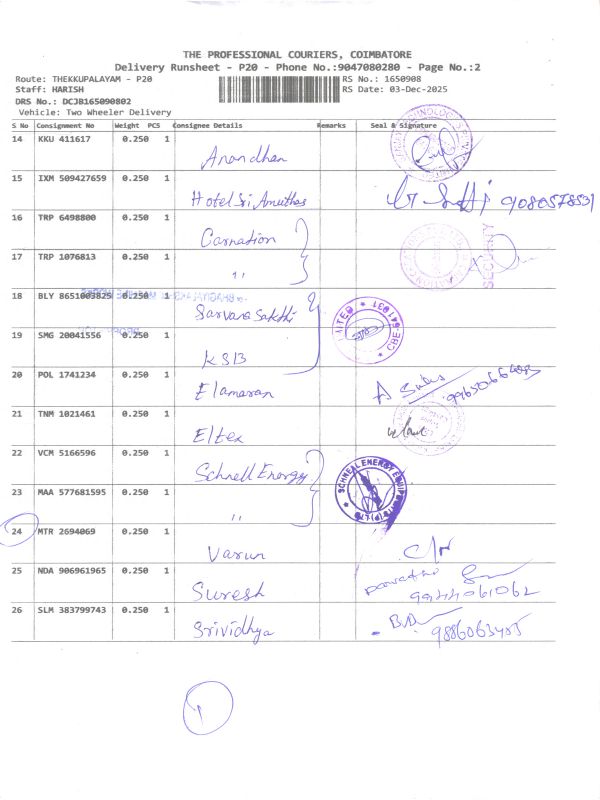 THE PROFESSIONAL COURIERS, COIMBATORE
Delivery Runsheet - P20 - Phone No.:9047080280 - Page No.:2
Route: THEKKUPALAYAM - P20
RS No.: 1650908
Staff: HARISH
RS Date: 03-Dec-2025
DRS No.: DCJB165090802
Vehicle: Two Wheeler Delivery
S No Consignment No Weight PCS Consignee Details Remarks Seal & Signature
14 KKU 411617 0.250 1 Anandhan
15 IXM 509427659 0.250 1 Hotel Sri Amuthas 9080578531
16 TRP 6498800 0.250 1 Carnation SECURITY
17 TRP 1076813 0.250 1 "
18 BLY 8651003825 0.250 1 Sarvana Sakthi
19 SMG 20041556 0.250 1 KSB
20 POL 1741234 0.250 1 Elamaran
21 TNM 1021461 0.250 1 Eltex
22 VCM 5166596 0.250 1 Schnell Energy
SCHNEAL ENERGY EQUIPMENTS (P) LTD
23 MAA 577681595 0.250 1 "
24 MTR 2694069 0.250 1 Varun
25 NDA 906961965 0.250 1 Suresh 9944061062
26 SLM 383799743 0.250 1 Srividhya 9886063485